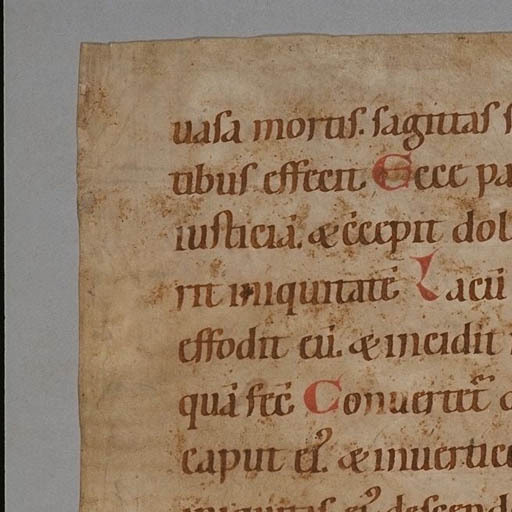 uasa mortis. sagittas s
tibus effecit. Ecce pa
iusticiā. & c̄cepit dol
rit iniquitatē Lacū
effodit eū. & incidit
quā fec̄ Conuertet̄
caput ei᾽. & inuertice
iniquitas ei᾽ descend